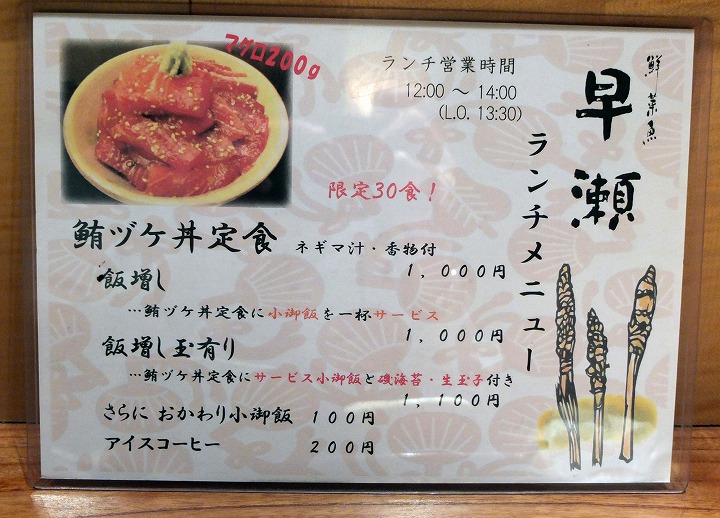 鮮菜魚
早瀬
ランチメニュー
ランチ営業時間
12:00 ～ 14:00
(L.O. 13:30)
マグロ200g
限定30食！
鮪ヅケ丼定食 ネギマ汁・香物付
1，000円
飯増し
…鮪ヅケ丼定食に小御飯を一杯サービス
1，000円
飯増し玉有り
…鮪ヅケ丼定食にサービス小御飯と磯海苔・生玉子付き
1，100円
さらに おかわり小御飯 100円
アイスコーヒー 200円